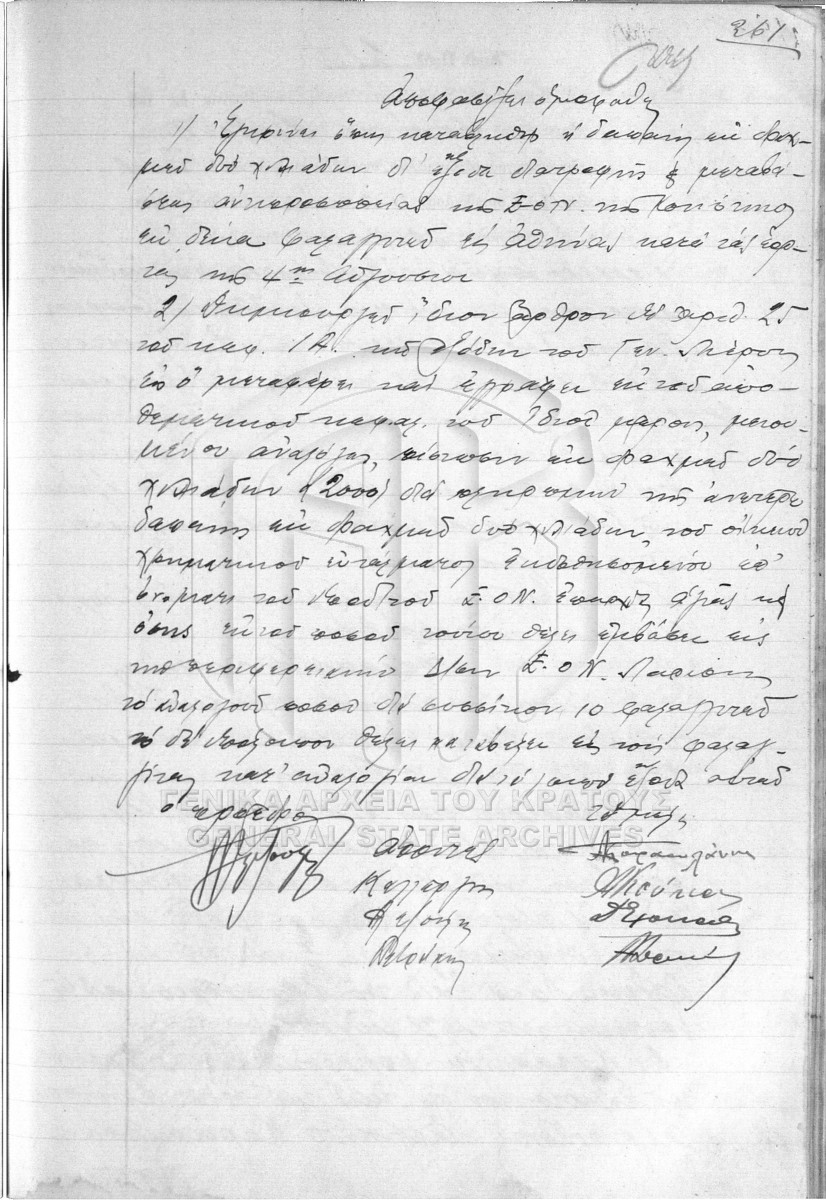 261
Αποφασίζει ομοφώθως
1) Εγκρίνει όπως καταβληθή η δαπάνη εκ δραχ-
μών δύο χιλιάδων δι' έξοδα διατροφής & μεταβά-
σεως αντιπροσωπείας της Ε.Ο.Ν. της Κοινότητος
εκ δέκα φαλαγγιτών εις Αθήνας κατά τας εορ-
τας της 4ης Αυγούστου
2) Δημιουργεί ίδιον άρθρον υπ' αριθ. 25
του κεφ. ΙΑ. των εξόδων του Γεν. Μέρους
εις ό μεταφέρει και εγγράφει εκ του απο-
θεματικού κεφαλ. του ιδίου μέρους, μειου-
μένου αναλόγως, πίστωσιν εκ δραχμών δύο
χιλιάδων (2000) διά πληρωμήν της ανωτέρω
δαπάνης εκ δραχμών δύο χιλιάδων, του σχετικού
χρηματικού εντάλματος εκδοθησομένου επ'
ονόματι του Ε.Ο.Ν. Αγιάς
όπως εκ του ποσού τούτου θέλει εμβάσει εις
την περιφερειακήν Δ/σιν Ε.Ο.Ν. Λαρίσης
το αναλογούν ποσόν διά συσσίτιον 10 φαλαγγιτών
το δε υπόλοιπον θέλει καταβάλει εις τους φαλαγ-
γίτας κατ' αναλογίαν διά τα λοιπά έξοδα αυτών
Ο πρόεδρος
Τα μέλη
ΓΕΝΙΚΑ ΑΡΧΕΙΑ ΤΟΥ ΚΡΑΤΟΥΣ
GENERAL STATE ARCHIVES